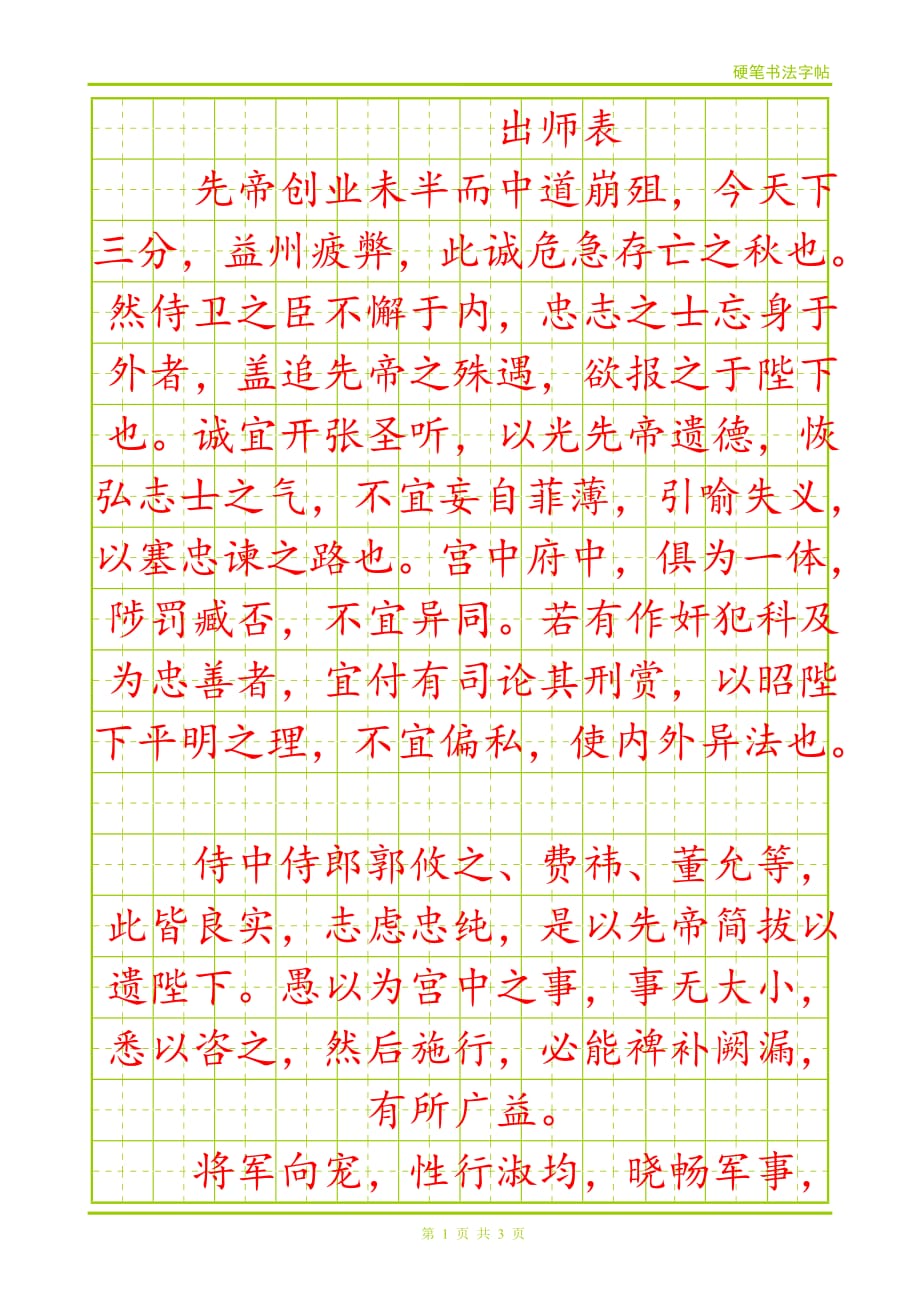 硬笔书法字帖
出师表
先帝创业未半而中道崩殂，今天下
三分，益州疲弊，此诚危急存亡之秋也。
然侍卫之臣不懈于内，忠志之士忘身于
外者，盖追先帝之殊遇，欲报之于陛下
也。诚宜开张圣听，以光先帝遗德，恢
弘志士之气，不宜妄自菲薄，引喻失义，
以塞忠谏之路也。宫中府中，俱为一体，
陟罚臧否，不宜异同。若有作奸犯科及
为忠善者，宜付有司论其刑赏，以昭陛
下平明之理，不宜偏私，使内外异法也。
侍中侍郎郭攸之、费祎、董允等，
此皆良实，志虑忠纯，是以先帝简拔以
遗陛下。愚以为宫中之事，事无大小，
悉以咨之，然后施行，必能裨补阙漏，
有所广益。
将军向宠，性行淑均，晓畅军事，
第 1 页 共 3 页